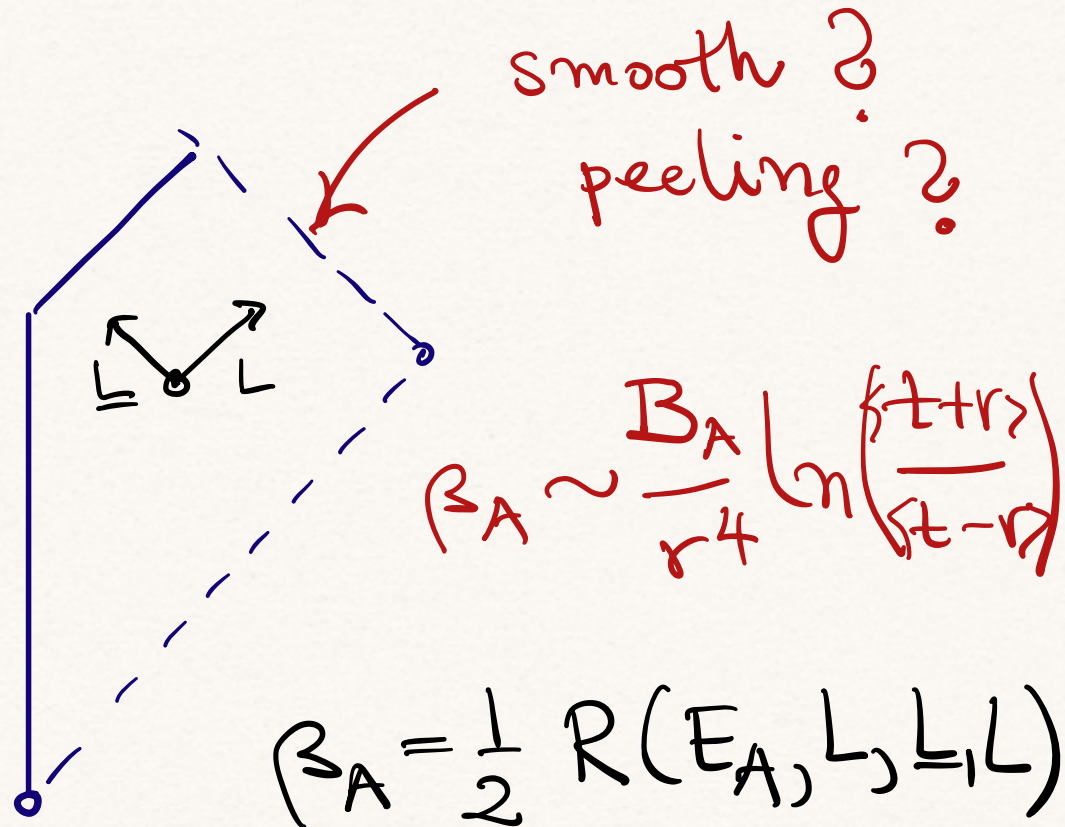 smooth ?
peeling ?
L̲ L
β_A ~ B_A / r^4 ln(⟨t+r⟩ / ⟨t-r⟩)
β_A = 1/2 R(E_A, L, L̲, L)